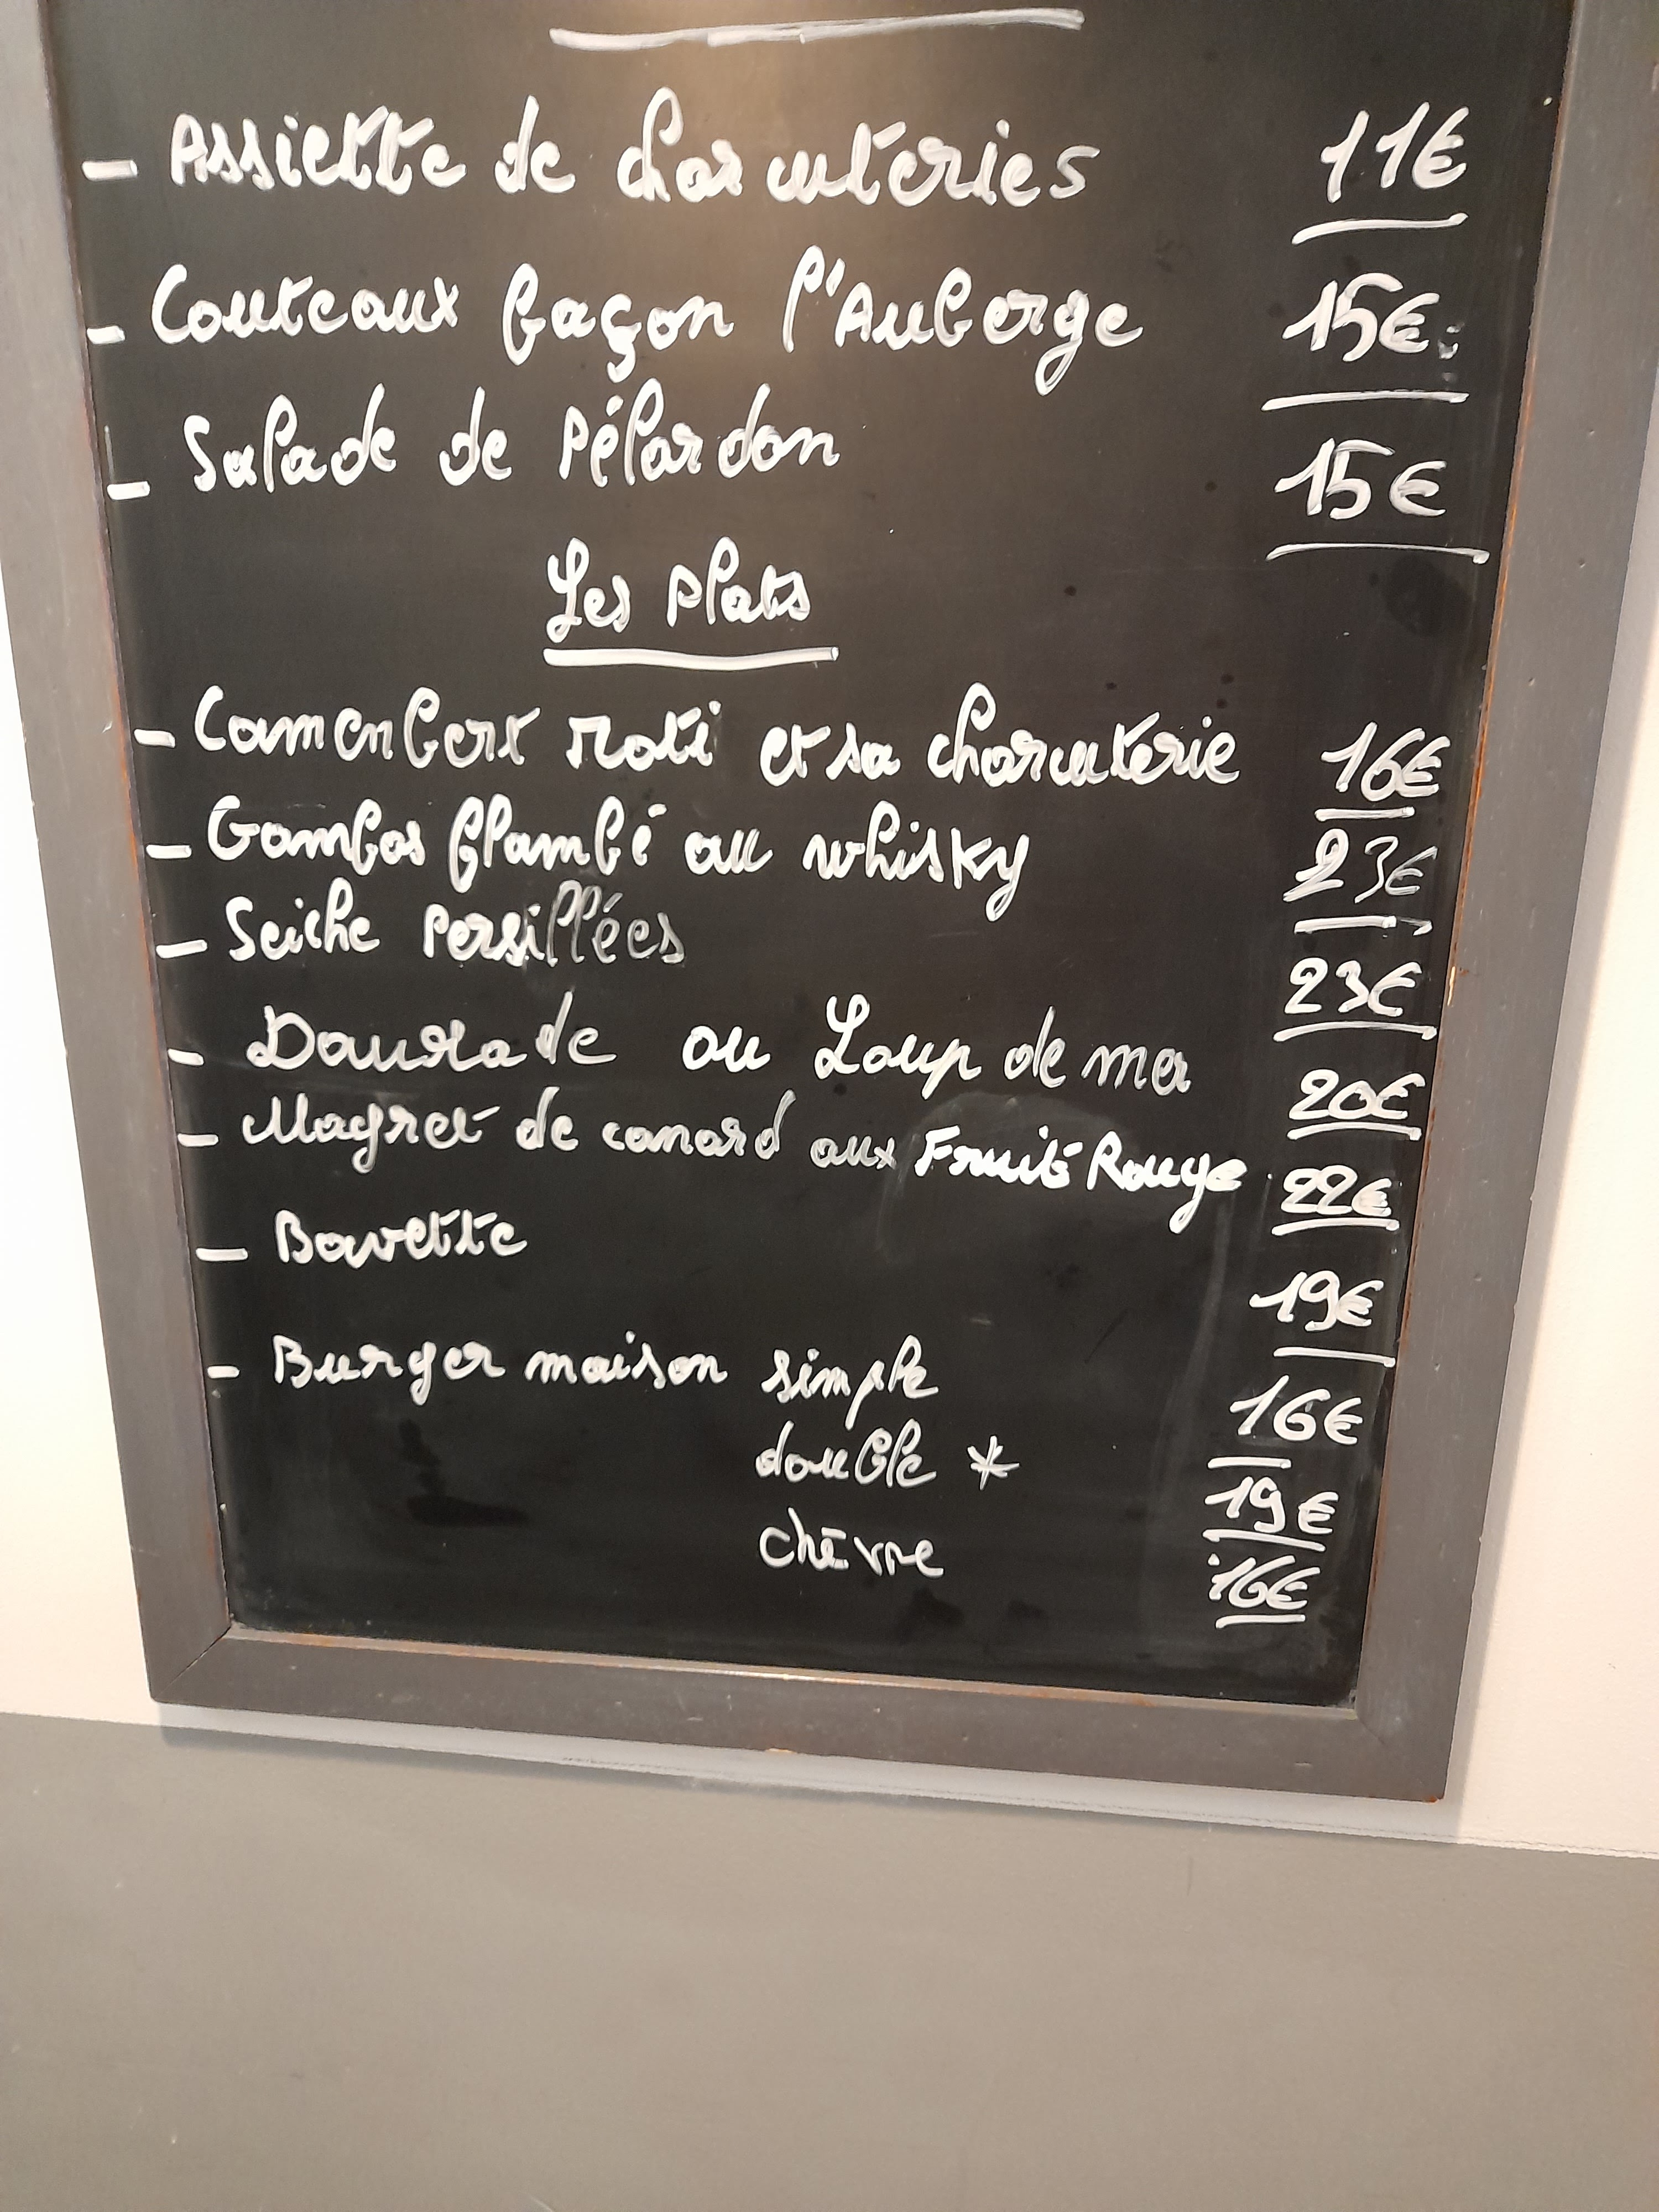 - Assiette de charcuteries 11€
- Couteaux façon l'Auberge 15€
- Salade de Pélardon 15€
Les Plats
- Camenbert roti et sa charcuterie 16€
- Gambas flambé au whisky 23€
- Seiche Persillées 23€
- Daurade ou Loup de mer 20€
- Magret de canard aux Fruits Rouge 22€
- Bavette 19€
- Burger maison simple 16€
double * 19€
chèvre 16€